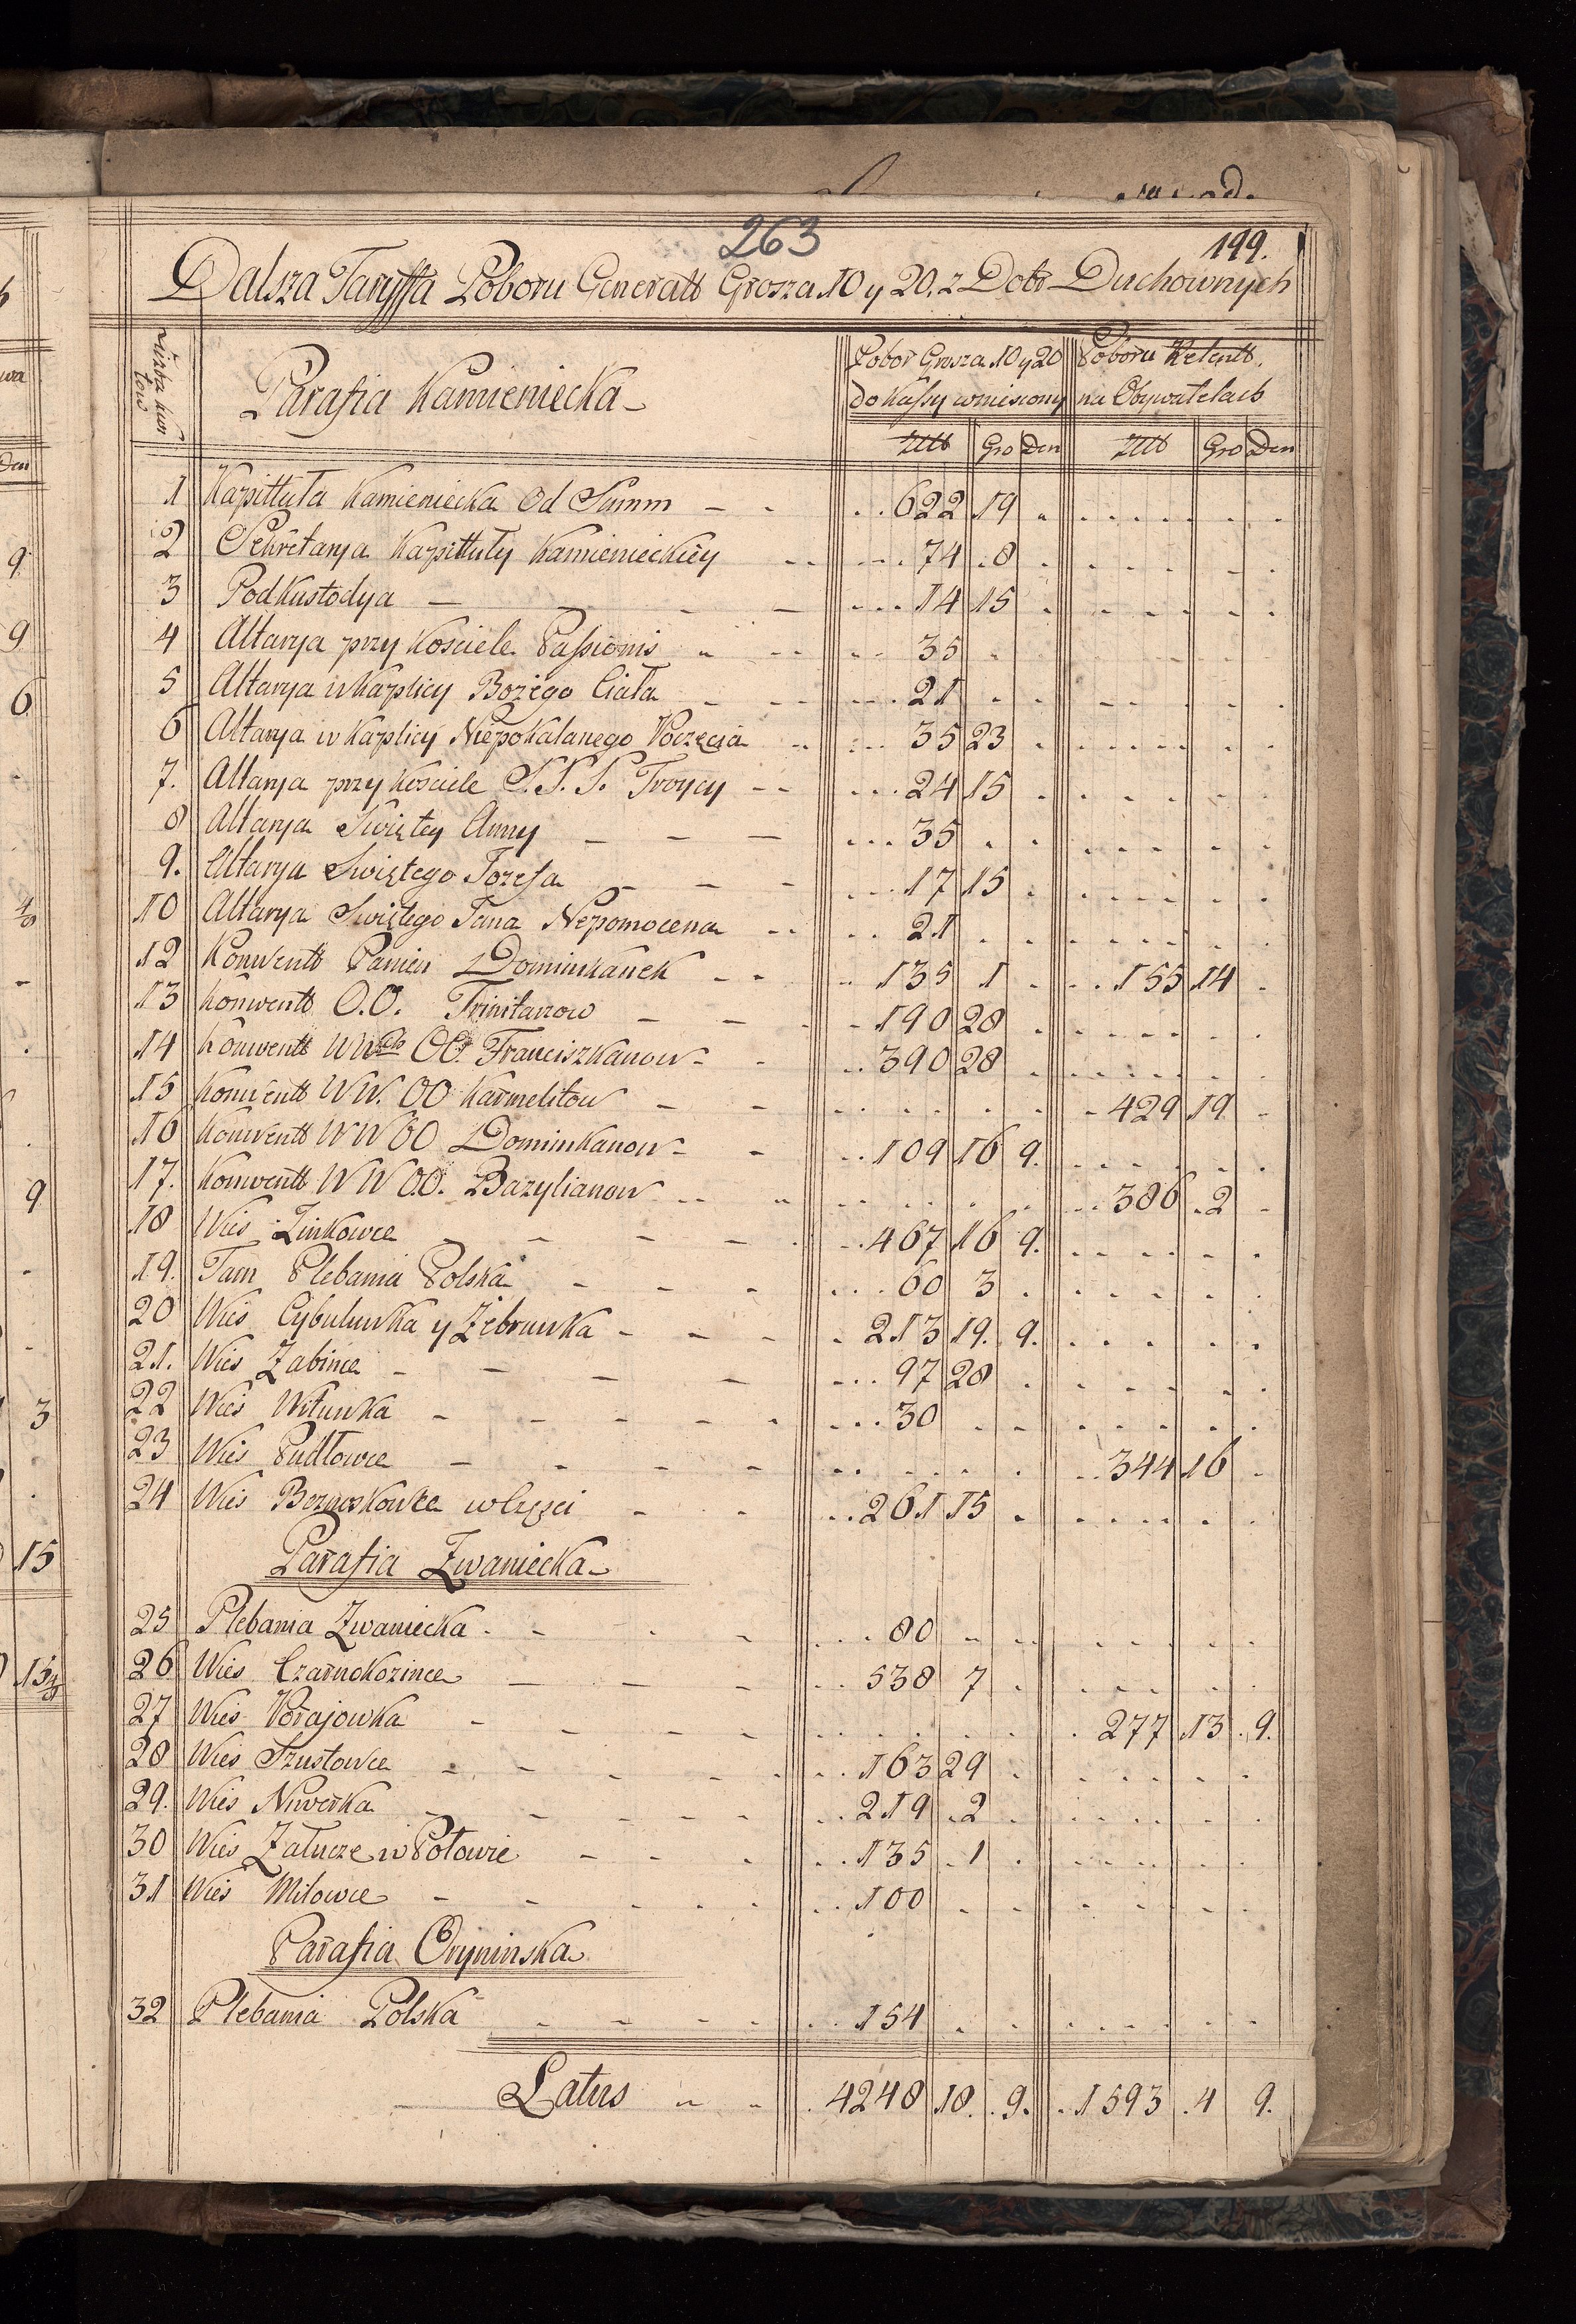 263
199.
Dalsza Taryffa Poboru Generalt Grosza 10 y 20. z Dobr Duchownych
Parafia Kamieniecka
Pobor Grosza 10 y 20 do Kassy wniesiony
Poboru Retentt. na Obywatelach
Złłt Gro Den Złłt Gro Den
1 Kapittuła Kamieniecka Od Summ 622 19
2 Sekretarya Kapittuły Kamienieckiey 74 8
3 PodKustodya 14 15
4 Altarya przy Kosciele Passionis 35
5 Altarya w Kaplicy Bożego Ciała 21
6 Altarya w Kaplicy Niepokalanego Poczęcia 35 23
7. Altarya przy Kosciele S.S.S. Troycy 24 15
8 Altarya Swiętey Anny 35
9. Altarya Swiętego Jozefa 17 15
10 Altarya Swiętego Jana Nepomocena 21
12 Konwentt Panien Dominikanek 135 1 155 14
13 Konwentt O.O. Trinitarzow 190 28
14 Konwentt WWch OO. Franciszkanow 390 28
15 Konwentt WW. OO Karmelitow 429 19
16 Konwentt WW OO Dominikanow 109 16 9.
17. Konwentt WW OO. Bazylianow 386 2
18 Wies Zinkowce 467 16 9.
19. Tam Plebania Polska 60 3
20 Wies Cybulowka y Zebrowka 213 19. 9.
21. Wies Zabince 97 28
22 Wies Witowka 30
23 Wies Pudłowce 344 16
24 Wies w Częsci 261 15
Parafia Zwaniecka
25 Plebania Zwaniecka 80
26 Wies Czarnokozince 538 7
27 Wies 277 13 9.
28 Wies Szustowce 163 29
29. Wies Niwerka 219 2
30 Wies Załucze w Połowie 135 1
31 Wies Milowce 100
Parafia Oryninska
32 Plebania Polska 154
Latus 4248 18. 9. 1593 4 9.